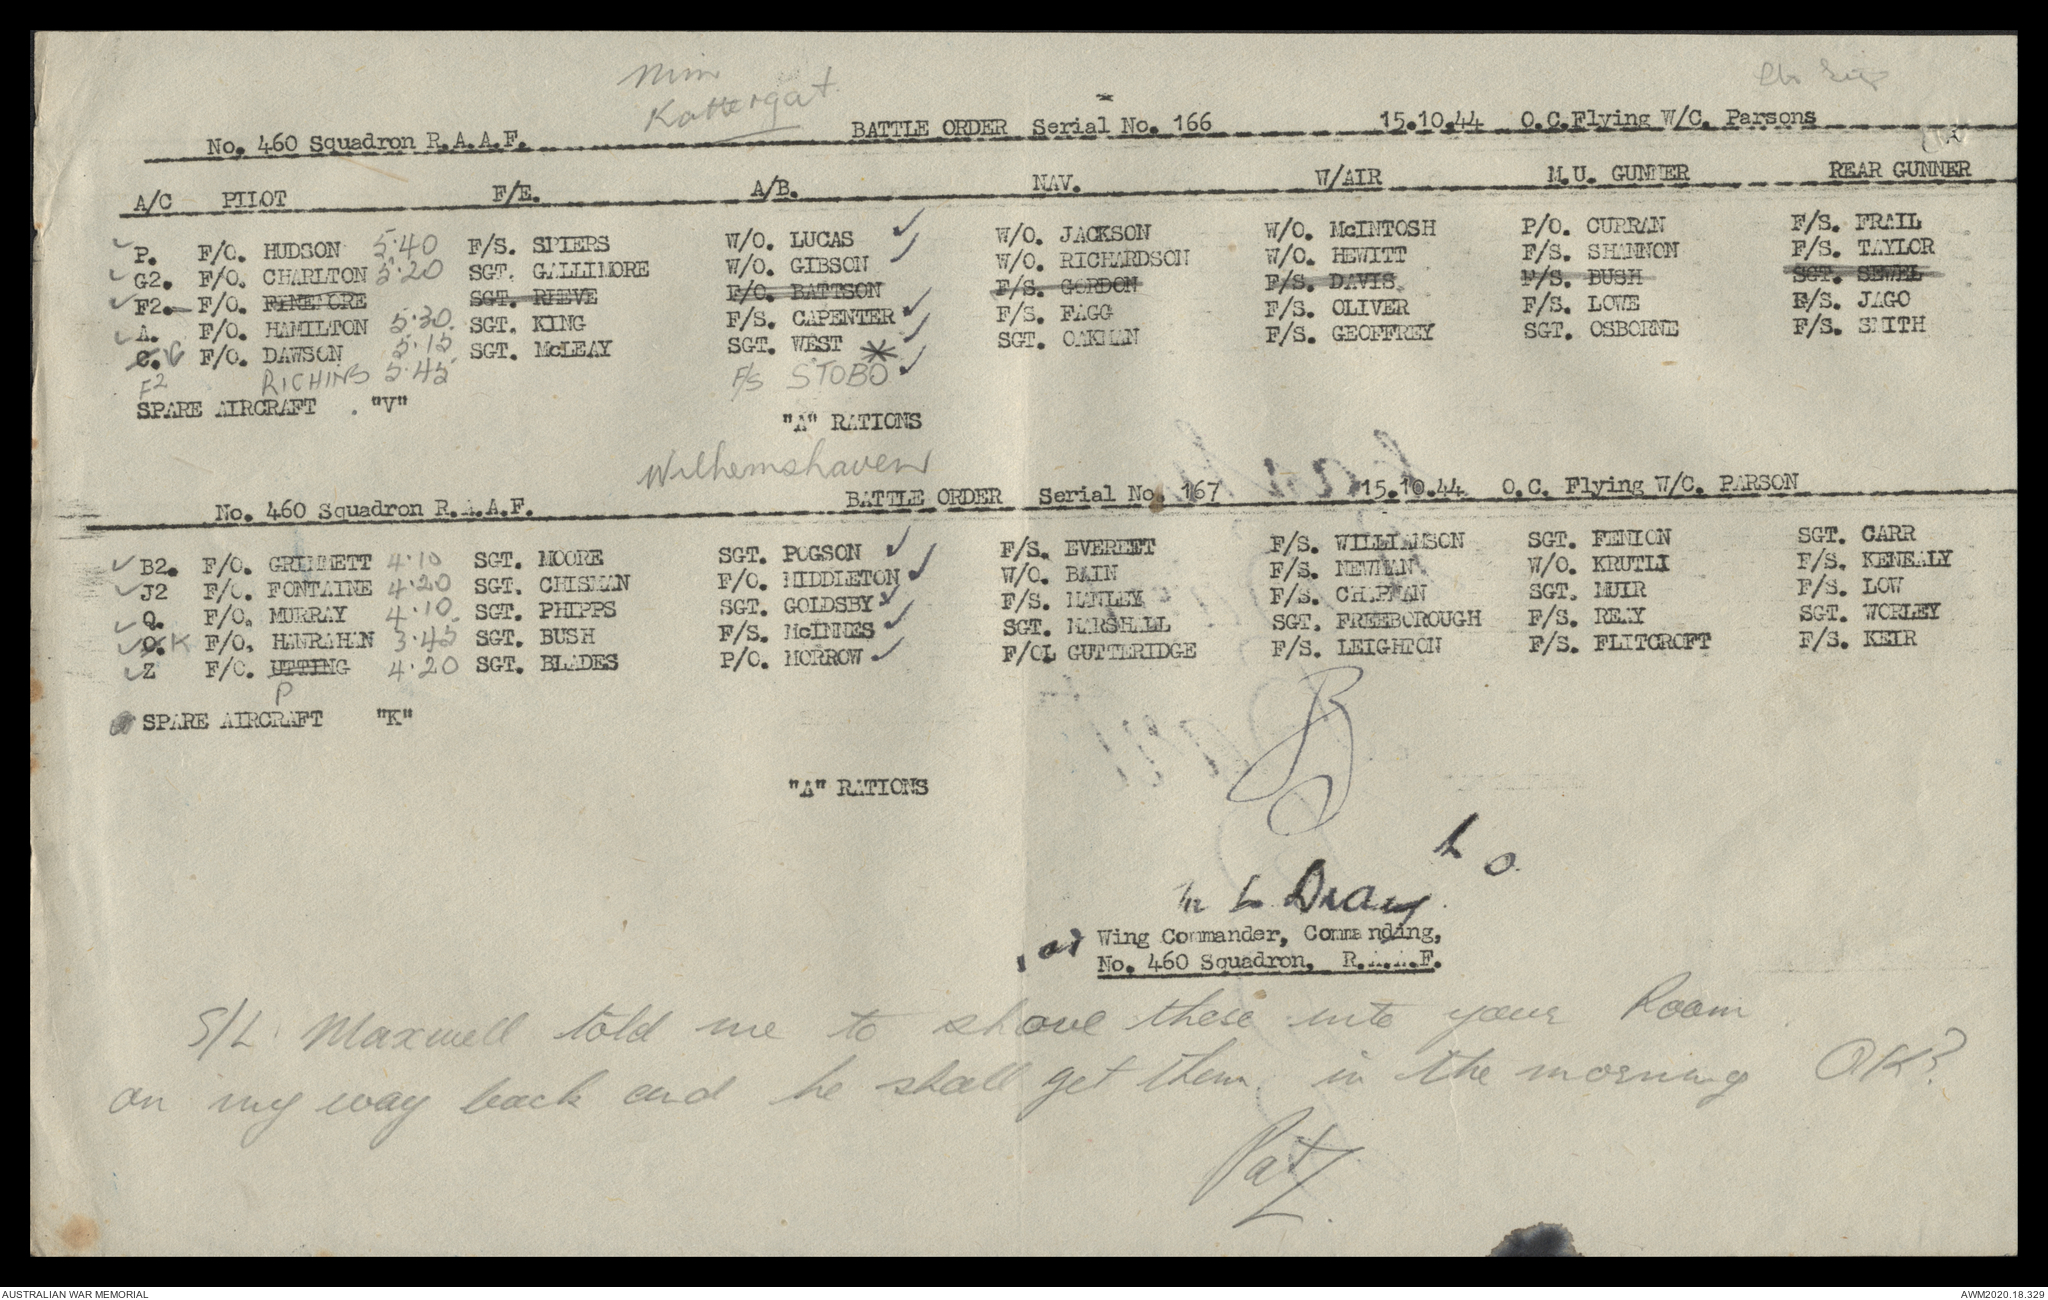 Kattergat
No. 460 Squadron R.A.A.F. BATTLE ORDER Serial No. 166 15.10.44 O.C.Flying W/C. Parsons
A/C PILOT F/E. A/B. NAV. W/AIR M.U. GUNNER REAR GUNNER
P. F/O. HUDSON 5.40 F/S. SPIERS W/O. LUCAS ✓ W/O. JACKSON W/O. McINTOSH P/O. CURRAN F/S. FRAIL
G2. F/O. CHARLTON 5.20 SGT. GALLIMORE W/O. GIBSON ✓ W/O. RICHARDSON W/O. HEWITT F/S. SHANNON F/S. TAYLOR
F2. F/O. FINEMORE SGT. RHEVE F/O. BATTSON F/S. GORDON F/S. DAVIS F/S. BUSH SGT. SEWEL
A. F/O. HAMILTON 5.30. SGT. KING F/S. CAPENTER ✓ F/S. FAGG F/S. OLIVER F/S. LOWE F/S. JAGO
C. F/O. DAWSON 5.15. SGT. McLEAY SGT. WEST ✓ SGT. OAKMAN F/S. GEOFFREY SGT. OSBORNE F/S. SMITH
F2 RICHINS 5.45 F/S STOBO ✓
SPARE AIRCRAFT . "V"
"A" RATIONS
Wilhemshaven
No. 460 Squadron R.A.A.F. BATTLE ORDER Serial No. 167 15.10.44 O.C. Flying W/C. PARSON
B2. F/O. GRIMMETT 4.10 SGT. MOORE SGT. POGSON ✓ F/S. EVERETT F/S. WILLIAMSON SGT. FENION SGT. CARR
J2 F/O. FONTAINE 4.20 SGT. CHISMAN F/O. MIDDLETON ✓ W/O. BAIN F/S. NEWMAN W/O. KRUTLI F/S. KENEALY
Q. F/O. MURRAY 4.10. SGT. PHIPPS SGT. GOLDSBY ✓ F/S. MANLEY F/S. CHAPMAN SGT. MUIR F/S. LOW
O. K F/O. HANRAHAN 3.45 SGT. BUSH F/S. McINNES ✓ SGT. MARSHALL SGT. FREEBOROUGH F/S. REAY SGT. WORLEY
Z F/O. UTTING 4.20 SGT. BLADES P/O. MORROW ✓ F/OL GUTTERIDGE F/S. LEIGHTON F/S. FLITCROFT F/S. KEIR
P
SPARE AIRCRAFT "K"
"A" RATIONS
Wing Commander, Commanding,
No. 460 Squadron, R.A.A.F.
S/L. Maxwell told me to shove these into your Room
on my way back and he shall get them in the morning OK?
Pat
AUSTRALIAN WAR MEMORIAL AWM2020.18.329